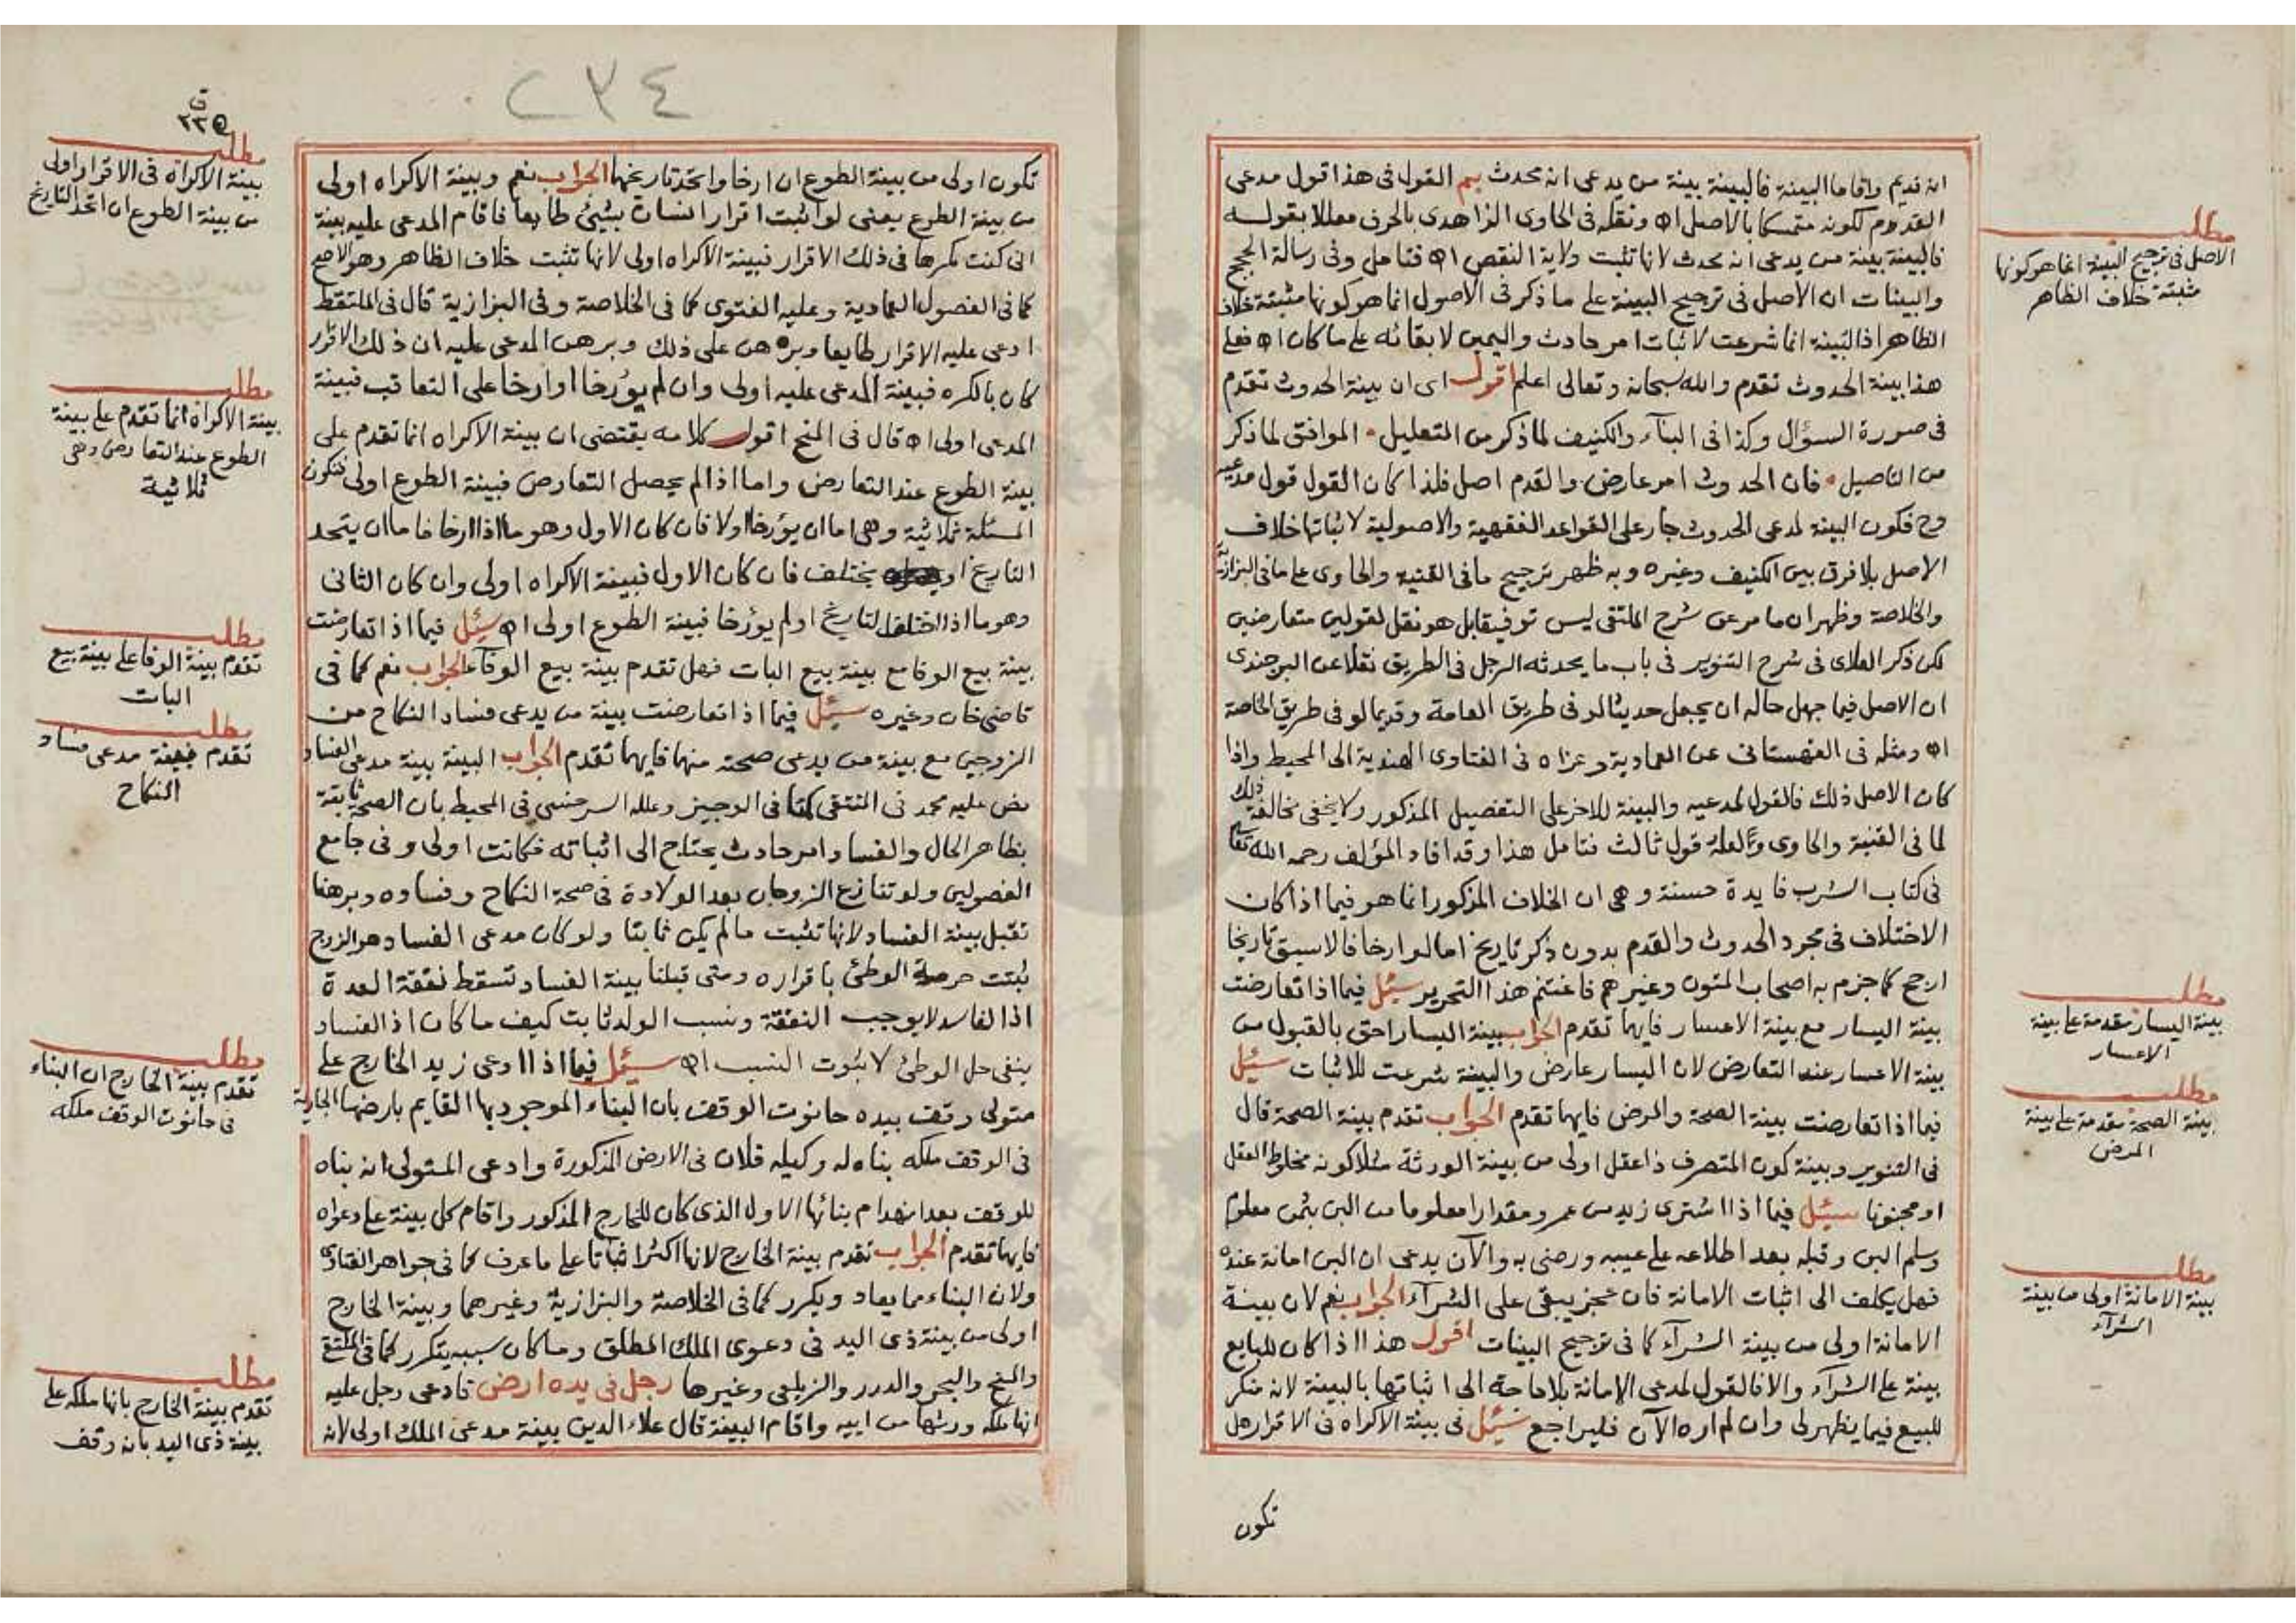 انه قديم واقاما البينة فالبينة بينة من يدعي انه محدث بم القول في هذا قول مدعي
القدوم لكونه متمسكا بالاصل اه ونقله في الحاوي الزاهدي بالحرف معللا بقوله
فالبينة بينة من يدعي انه محدث لانها تثبت ولاية النقص اه فتامل وفي رسالة الحجج
والبينات ان الاصل في ترجيح البينة على ما ذكر في الاصول انما هو كونها مثبتة خلاف
الظاهر اذ البينة انما شرعت لاثبات امر حادث واليمين لابقائه على ما كان اه فعلى
هذا بينة الحدوث تقدم والله سبحانه وتعالى اعلم اقول اي ان بينة الحدوث تقدم
في صورة السؤال وكذا في البناء والكنيف لما ذكر من التعليل الموافق لما ذكر
من التاصيل فان الحدوث امر عارض والقدم اصل فلذا كان القول قول مدعيه
وح فكون البينة لمدعي الحدوث جار على القواعد الفقهية والاصولية لاثباتها خلاف
الاصل بلا فرق بين الكنيف وغيره وبه ظهر ترجيح ما في القنية والحاوي على ما في البزازية
والخلاصة وظهر ان ما مر عن شرح الملتقى ليس توفيقا بل هو نقل لقولين متعارضين
لكن ذكر العلاي في شرح التنوير في باب ما يحدثه الرجل في الطريق نقلا عن البرجندي
ان الاصل فيما جهل حاله ان يجعل حديثا لو في طريق العامة وقديما لو في طريق الخاصة
اه ومثله في القهستاني عن العمادية وعزاه في الفتاوى الهندية الى المحيط واذا
كان الاصل ذلك فالقول لمدعيه والبينة للاخر على التفصيل المذكور ولا يخفى مخالفة ذلك
لما في القنية والحاوي ولعله قول ثالث فتامل هذا وقد افاد المؤلف رحمه الله تعالى
في كتاب الشرب فايدة حسنة وهي ان الخلاف المذكور انما هو فيما اذا كان
الاختلاف في مجرد الحدوث والقدم بدون ذكر تاريخ اما لو ارخا فالاسبق تاريخا
ارجح كما جزم به اصحاب المتون وغيرهم فاغتنم هذا التحرير سئل فيما اذا تعارضت
بينة اليسار مع بينة الاعسار فايهما تقدم الجواب بينة اليسار احق بالقبول من
بينة الاعسار عند التعارض لان اليسار عارض والبينة شرعت للاثبات سئل
فيما اذا تعارضت بينة الصحة والمرض فايهما تقدم الجواب تقدم بينة الصحة قال
في التنوير وبينة كون المتصرف ذا عقل اولى من بينة الورثة مثلا كونه مخلوط العقل
او مجنونا سئل فيما اذا اشترى زيد من عمرو مقدارا معلوما من البن بثمن معلوم
وسلم البن وقبله بعد اطلاعه على عيبه ورضي به والآن يدعي ان البن امانة عنده
فهل يكلف الى اثبات الامانة فان عجز يبقى على الشرآء الجواب نعم لان بينة
الامانة اولى من بينة الشرآء كما في ترجيح البينات اقول هذا اذا كان للبايع
بينة على الشرآء والا فالقول لمدعي الامانة بلا حاجة الى اثباتها بالبينة لانه منكر
للبيع فيما يظهر لي وان لم اره الآن فليراجع سئل في بينة الاكراه في الاقرار هل
تكون
مطلب
الاصل في ترجيح البينة انما هو كونها
مثبتة خلاف الظاهر
مطلب
بينة اليسار مقدمة على بينة
الاعسار
مطلب
بينة الصحة مقدمة على بينة
المرض
مطلب
بينة الامانة اولى من بينة
الشرآء
٢٣٤
٢٣٥
تكون اولى من بينة الطوع ان ارخا واتحد تاريخهما الجواب نعم وبينة الاكراه اولى
من بينة الطوع يعني لو اثبت اقرار انسان بشئ طايعا فاقام المدعى عليه بينة
اني كنت مكرها في ذلك الاقرار فبينة الاكراه اولى لانها تثبت خلاف الظاهر وهو الاصح
كما في الفصول العمادية وعليه الفتوى كما في الخلاصة وفي البزازية قال في الملتقط
ادعى عليه الاقرار طايعا وبرهن على ذلك وبرهن المدعى عليه ان ذلك الاقرار
كان بالكره فبينة المدعى عليه اولى وان لم يؤرخا او ارخا على التعاقب فبينة
المدعي اولى اه قال في المنح اقول كلامه يقتضي ان بينة الاكراه انما تقدم على
بينة الطوع عند التعارض واما اذا لم يحصل التعارض فبينة الطوع اولى فتكون
المسئلة ثلاثية وهي اما ان يؤرخا او لا فان كان الاول وهو ما اذا ارخا فاما ان يتحد
التاريخ او يختلف فان كان الاول فبينة الاكراه اولى وان كان الثاني
وهو ما اذا اختلف التاريخ او لم يؤرخا فبينة الطوع اولى اه سئل فيما اذا تعارضت
بينة بيع الوفا مع بينة بيع البات فهل تقدم بينة بيع الوفاء الجواب نعم كما في
قاضي خان وغيره سئل فيما اذا تعارضت بينة من يدعي فساد النكاح من
الزوجين مع بينة من يدعي صحته منهما فايهما تقدم الجواب البينة بينة مدعي الفساد
نص عليه محمد في المنتقى كما في الوجيز وعلله السرخسي في المحيط بان الصحة ثابتة
بظاهر الحال والفساد امر حادث يحتاج الى اثباته فكانت اولى وفي جامع
الفصولين ولو تنازع الزوجان بعد الولادة في صحة النكاح وفساده وبرهنا
تقبل بينة الفساد لانها تثبت ما لم يكن ثابتا ولو كان مدعي الفساد هو الزوج
ثبتت حرمة الوطئ باقراره ومتى قبلنا بينة الفساد تسقط نفقة العدة
اذ الفاسد لا يوجب النفقة ونسب الولد ثابت كيف ما كان اذ الفساد
ينفي حل الوطئ لا ثبوت النسب اه سئل فيما اذا ادعى زيد الخارج على
متولي وقف بيده حانوت الوقف بان البناء الموجود بها القايم بارضها الجارية
في الوقف ملكه بناه له وكيله فلان في الارض المذكورة وادعى المتولي انه بناه
للوقف بعد انهدام بنائها الاول الذي كان للخارج المذكور واقام كل بينة على دعواه
فايهما تقدم الجواب تقدم بينة الخارج لانها اكثر اثباتا على ما عرف كما في جواهر الفتاوى
ولان البناء مما يعاد ويكرر كما في الخلاصة والبزازية وغيرهما وبينة الخارج
اولى من بينة ذي اليد في دعوى الملك المطلق وما كان سببه يتكرر كما في الملتقى
والمنح والبحر والدرر والزيلعي وغيرها رجل في يده ارض فادعى رجل عليه
انها ملكه ورثها من ابيه واقام البينة قال علاء الدين بينة مدعي الملك اولى لانه
مطلب
بينة الاكراه في الاقرار اولى
من بينة الطوع ان اتحد التاريخ
مطلب
بينة الاكراه انما تقدم على بينة
الطوع عند التعارض وهي
ثلاثية
مطلب
تقدم بينة الوفا على بينة بيع
البات
مطلب
تقدم بينة مدعي فساد
النكاح
مطلب
تقدم بينة الخارج ان البناء
في حانوت الوقف ملكه
مطلب
تقدم بينة الخارج بانها ملكه على
بينة ذي اليد بانه وقف